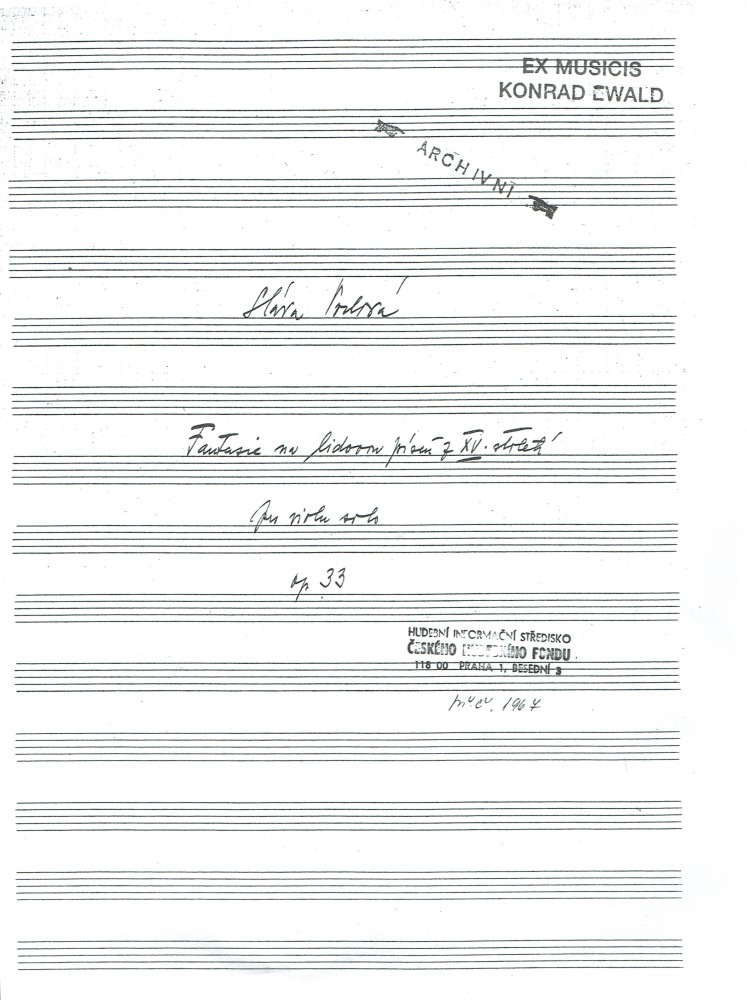 EX MUSICIS
KONRAD EWALD
ARCHIVNÍ
Sláva Vorlová
Fantasie na lidovou píseň z XV. století
pro violu solo
op 33
HUDEBNÍ INFORMAČNÍ STŘEDISKO
ČESKÉHO HUDEBNÍHO FONDU
118 00 PRAHA 1, BESEDNÍ 3
1967